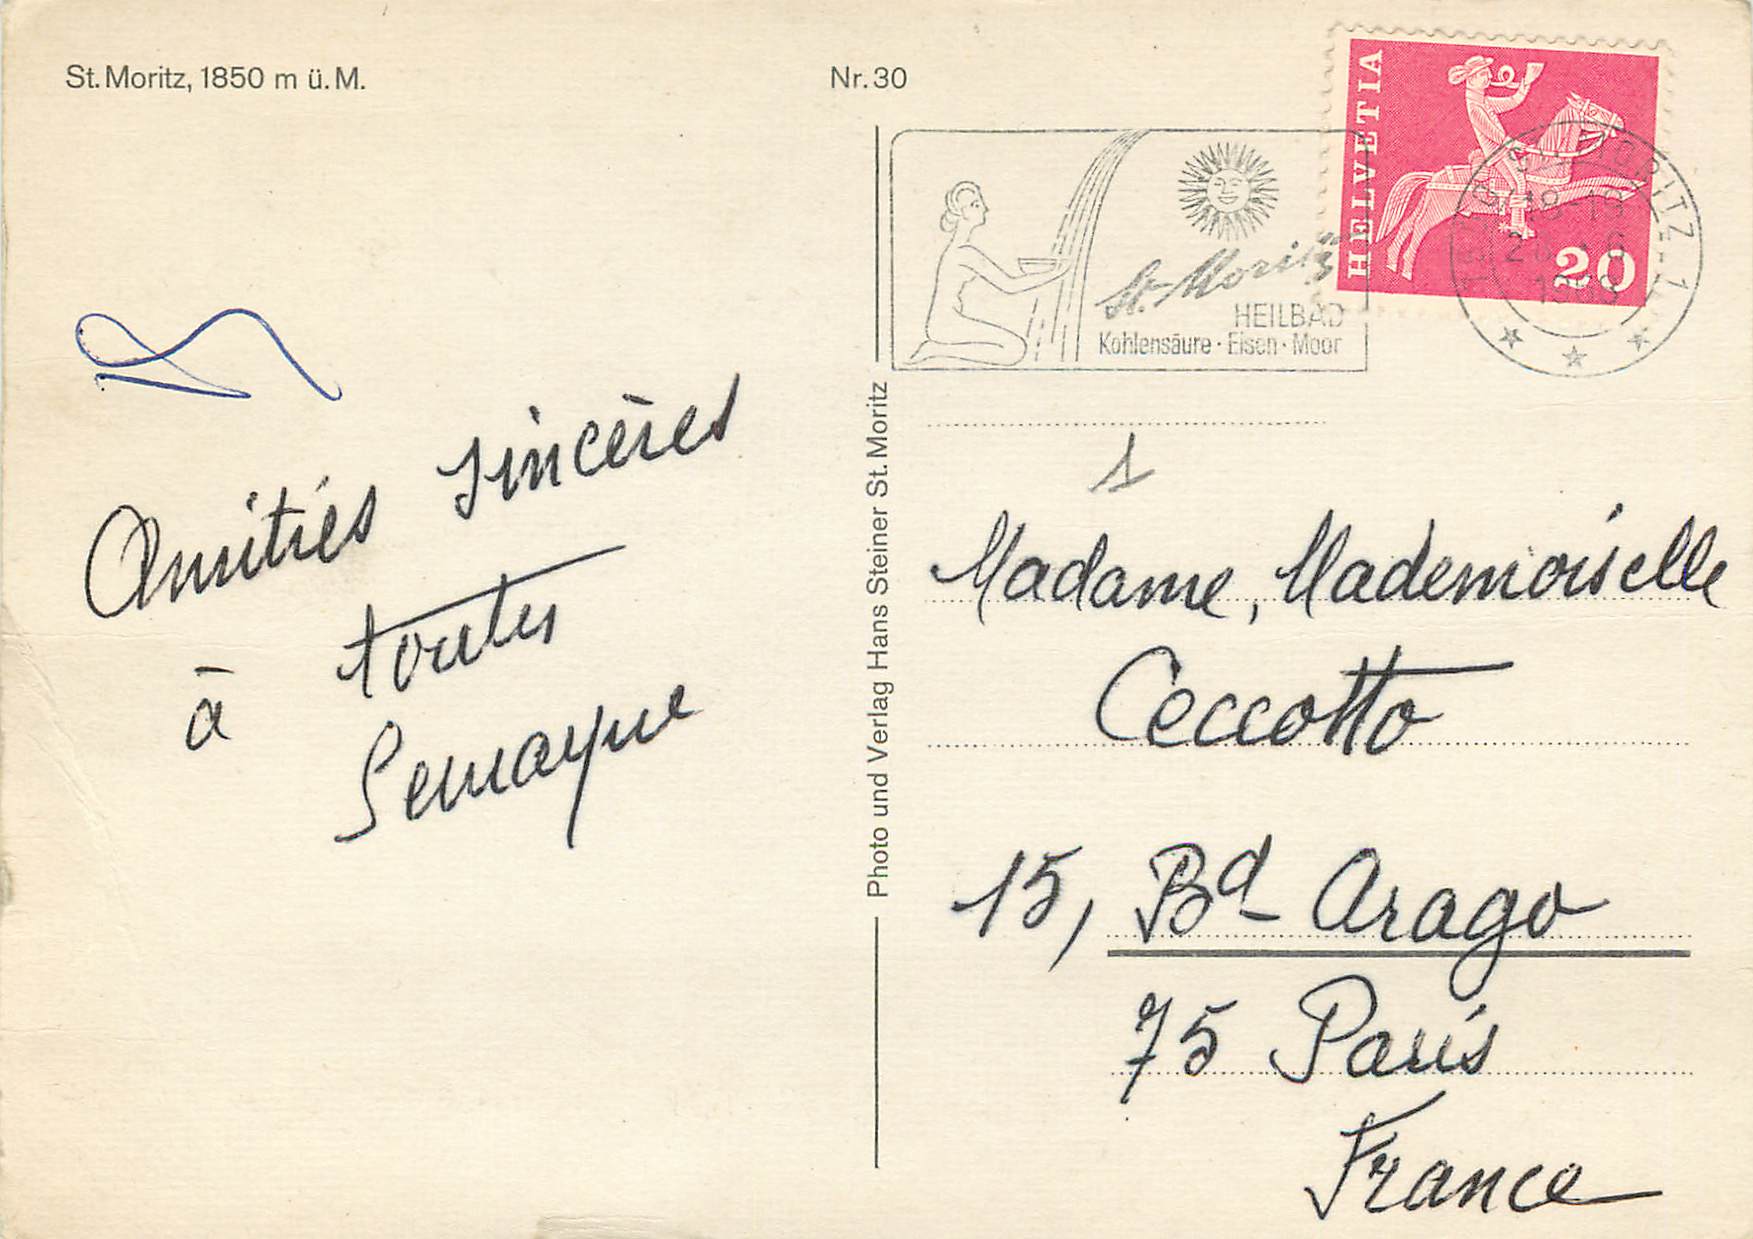 St. Moritz, 1850 m ü. M.
Nr. 30
HELVETIA
20
St. Moritz
HEILBAD
Kohlensäure · Eisen · Moor
ST. MORITZ-1
Amitiés sincères
à toutes
Photo und Verlag Hans Steiner St. Moritz
1
Madame, Mademoiselle
Ceccotto
15, Bd Arago
75 Paris
France